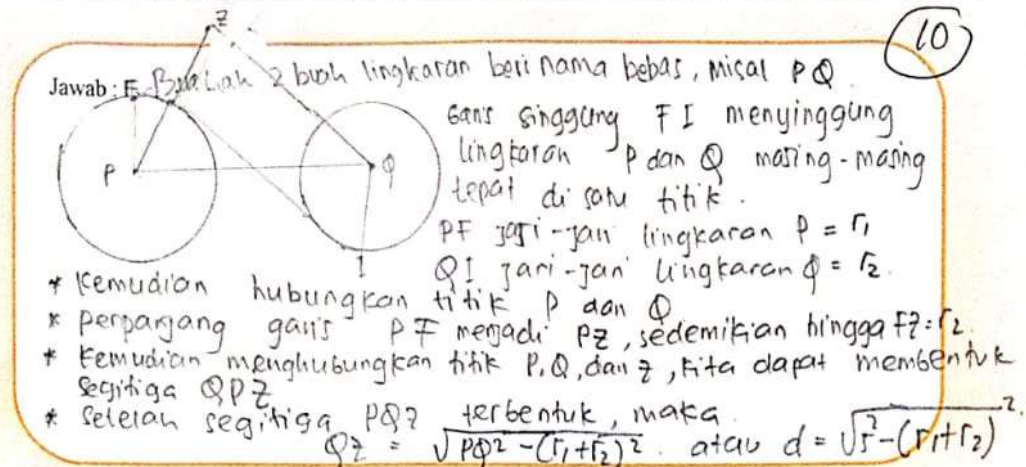 10
Z
Jawab : Buatlah 2 buah lingkaran beri nama bebas, misal PQ.
F
P
Q
I
Garis singgung FI menyinggung
lingkaran P dan Q masing-masing
tepat di satu titik.
PF jari-jari lingkaran P = r₁
QI jari-jari lingkaran Q = r₂.
* Kemudian hubungkan titik P dan Q
* perpanjang garis PF menjadi PZ, sedemikian hingga FZ = r₂.
* Kemudian menghubungkan titik P, Q, dan Z, kita dapat membentuk
segitiga QPZ
* setelah segitiga PQZ terbentuk, maka.
QZ = √(PQ² - (r₁+r₂)²). atau d = √(s² - (r₁+r₂)²).